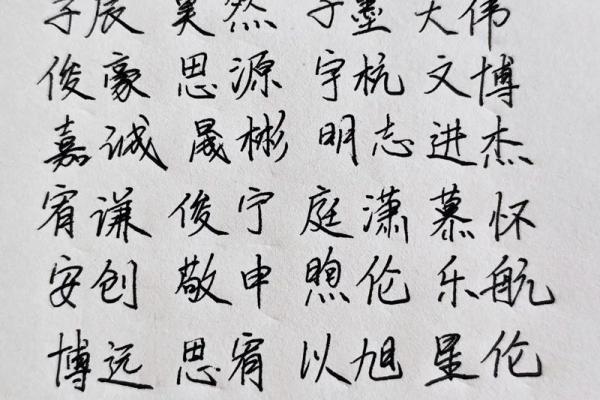 子辰 昊然 子墨 大伟
俊豪 思源 宇杭 文博
嘉诚 晟彬 明志 进杰
宥谦 俊宁 庭潇 慕怀
安创 敬申 煦伦 乐航
博远 思宥 以旭 星伦